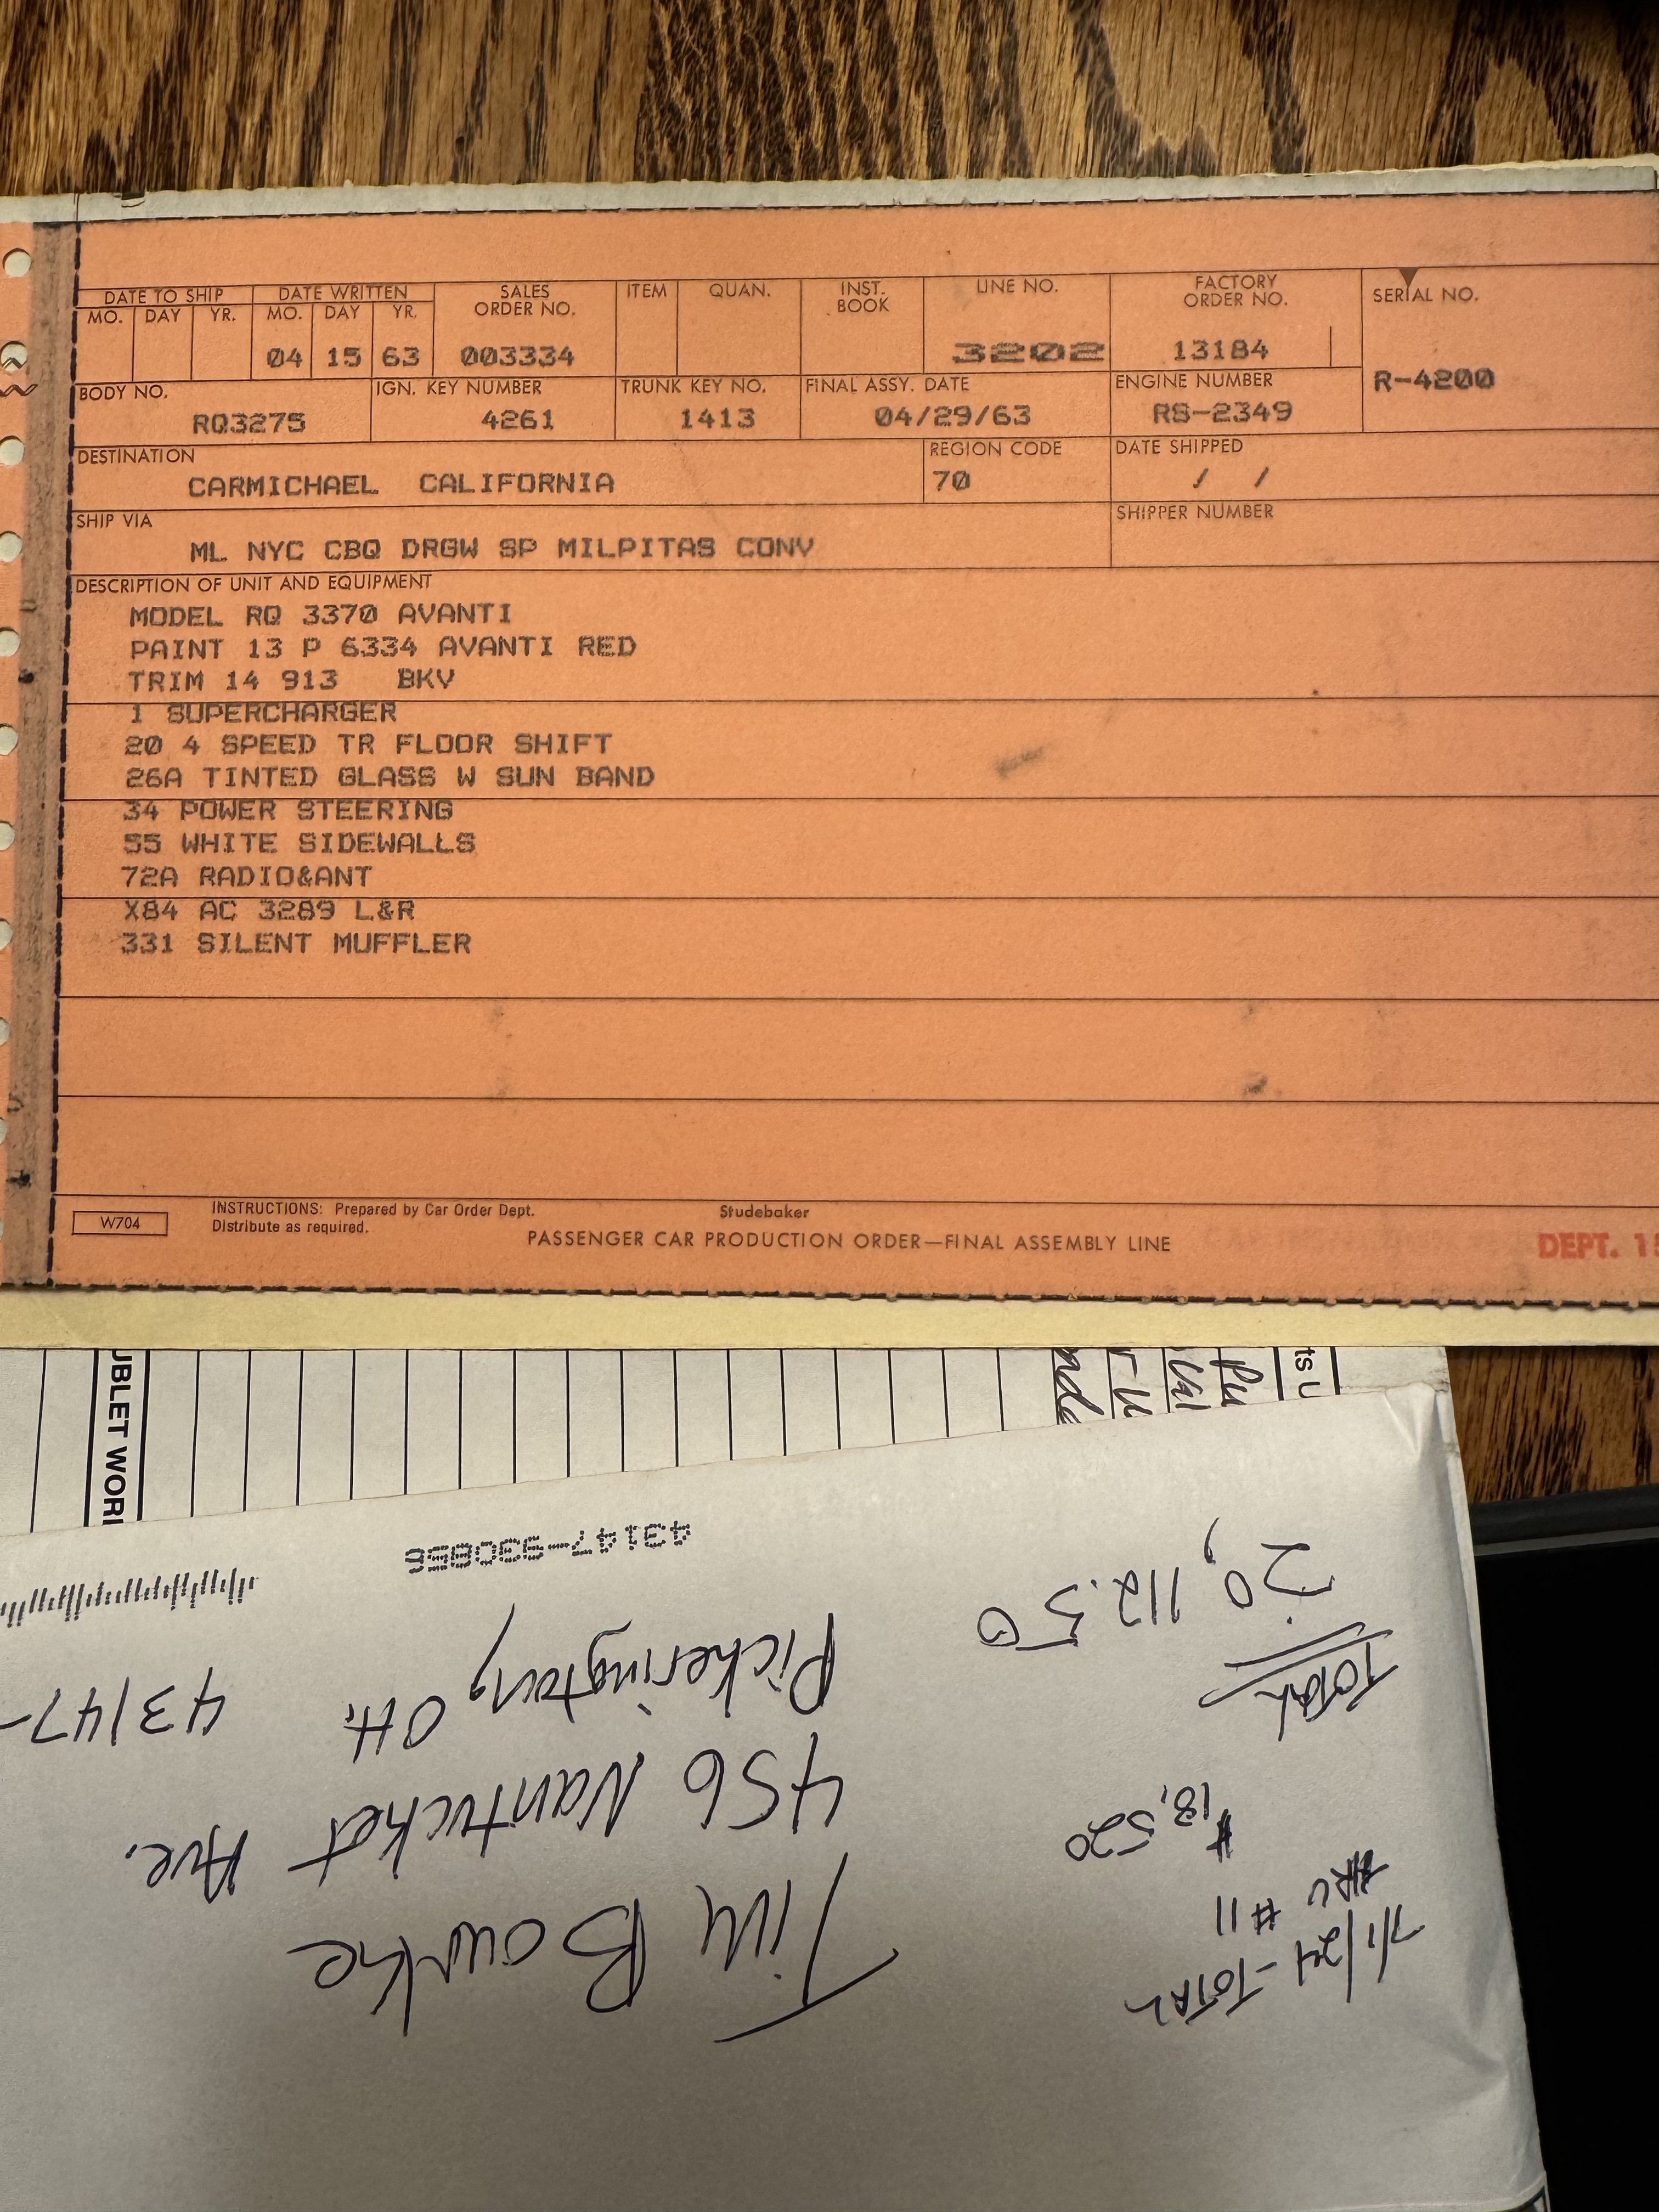 DATE TO SHIP DATE WRITTEN SALES ORDER NO. ITEM QUAN. INST. BOOK LINE NO. FACTORY ORDER NO. SERIAL NO.
MO. DAY YR. MO. DAY YR.
04 15 63 003334 3202 13184
R-4200
BODY NO. IGN. KEY NUMBER TRUNK KEY NO. FINAL ASSY. DATE ENGINE NUMBER
RQ3275 4261 1413 04/29/63 RS-2349
DESTINATION REGION CODE DATE SHIPPED
CARMICHAEL CALIFORNIA 70 / /
SHIP VIA SHIPPER NUMBER
ML NYC CBQ DRGW SP MILPITAS CONV
DESCRIPTION OF UNIT AND EQUIPMENT
MODEL RQ 3370 AVANTI
PAINT 13 P 6334 AVANTI RED
TRIM 14 913 BKV
1 SUPERCHARGER
20 4 SPEED TR FLOOR SHIFT
26A TINTED GLASS W SUN BAND
34 POWER STEERING
55 WHITE SIDEWALLS
72A RADIO&ANT
X84 AC 3289 L&R
331 SILENT MUFFLER
W704
INSTRUCTIONS: Prepared by Car Order Dept.
Distribute as required.
Studebaker
PASSENGER CAR PRODUCTION ORDER—FINAL ASSEMBLY LINE
DEPT. 1
UBLET WORK
ts U
7/1/24 - TOTAL
#11
$18,520
Total
20,112.50
Tim Bourke
456 Nantucket Ave.
Pickerington, OH. 43147-
43147-930856